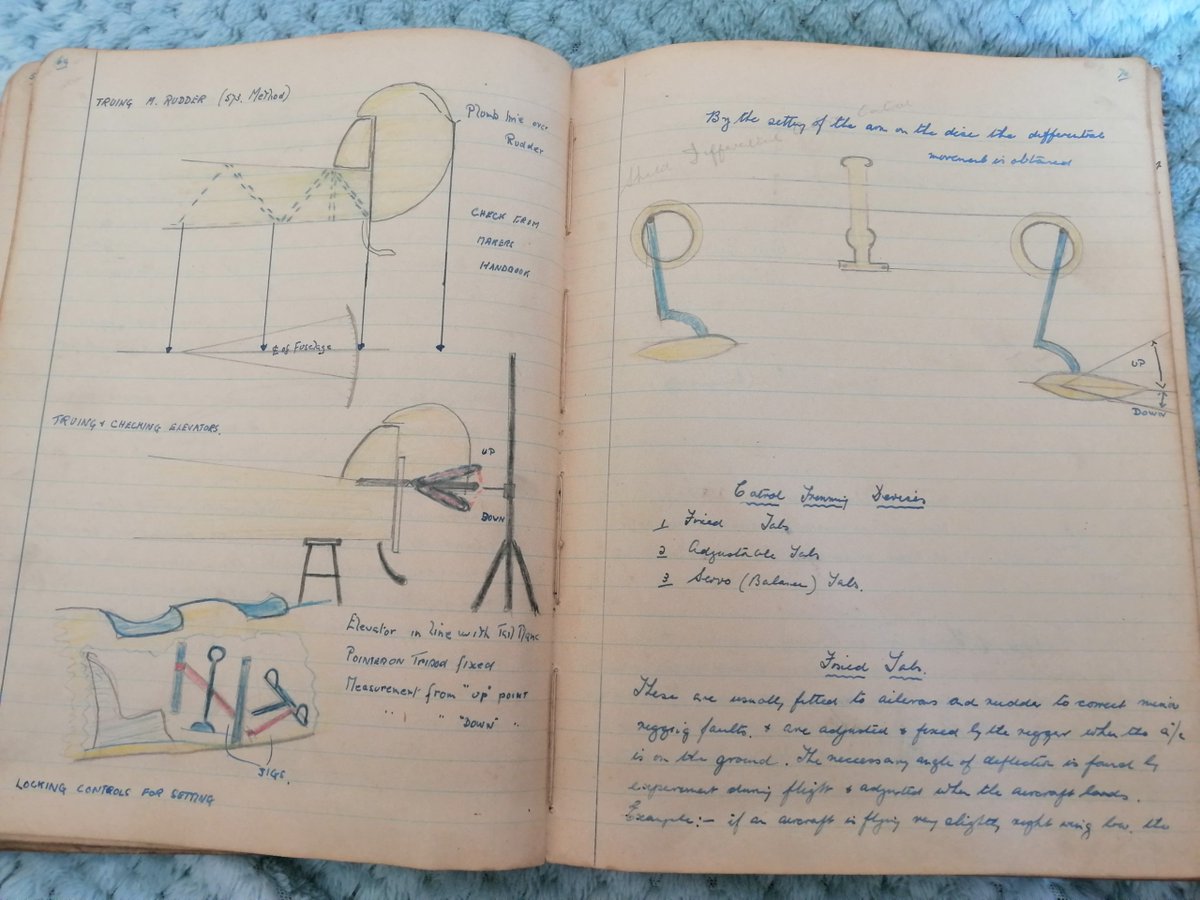 TRUING M. RUDDER (SYS. Method)
Plumb line over
Rudder
CHECK FROM
MAKERS
HANDBOOK
℄ of Fuselage
TRUING & CHECKING ELEVATORS.
UP
DOWN
Elevator in line with Tail Plane
POINTER ON TRIPOD fixed
Measurement from "UP" point
" " " "DOWN" "
JIGS.
LOCKING CONTROLS FOR SETTING
By the setting of the arm on the disc the differential
movement is obtained
UP
DOWN
Control Trimming Devices
1 Fixed Tabs
2 Adjustable Tabs
3 Servo (Balance) Tabs.
Fixed Tabs.
These are usually fitted to ailerons and rudder to correct minor
rigging faults. & are adjusted & fixed by the rigger when the a/c
is on the ground. The neccessary angle of deflection is found by
experiment during flight & adjusted when the aircraft lands.
Example:- if an aircraft is flying very slightly right wing low. the